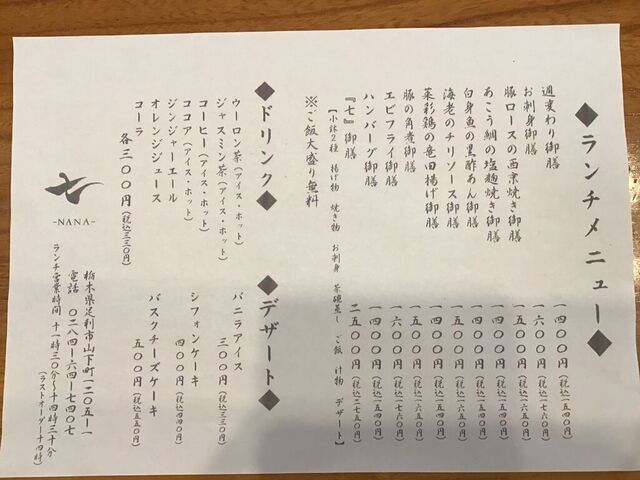 ◆ランチメニュー◆
週変わり御膳 一四〇〇円(税込一五四〇円)
お刺身御膳 一六〇〇円(税込一七六〇円)
豚ロースの西京焼き御膳 一五〇〇円(税込一六五〇円)
あこう鯛の塩麹焼き御膳 一四〇〇円(税込一五四〇円)
白身魚の黒酢あん御膳 一四〇〇円(税込一五四〇円)
海老のチリソース御膳 一五〇〇円(税込一六五〇円)
菜彩鶏の竜田揚げ御膳 一四〇〇円(税込一五四〇円)
豚の角煮御膳 一五〇〇円(税込一六五〇円)
エビフライ御膳 一六〇〇円(税込一七六〇円)
ハンバーグ御膳 一四〇〇円(税込一五四〇円)
『七』御膳 二五〇〇円(税込二七五〇円)
【小鉢2種 揚げ物 焼き物 お刺身 茶碗蒸し ご飯 汁物 デザート】
※ご飯大盛り無料
◆ドリンク◆
ウーロン茶(アイス・ホット)
ジャスミン茶(アイス・ホット)
コーヒー(アイス・ホット)
ココア(アイス・ホット)
ジンジャーエール
オレンジジュース
コーラ
各三〇〇円(税込三三〇円)
◆デザート◆
バニラアイス
三〇〇円(税込三三〇円)
シフォンケーキ
四〇〇円(税込四四〇円)
バスクチーズケーキ
五〇〇円(税込五五〇円)
七
-NANA-
栃木県足利市山下町一二〇五-一
電話 〇二八四-六四-七四〇七
ランチ営業時間 十一時三〇分~十四時三十分
(ラストオーダー十四時)